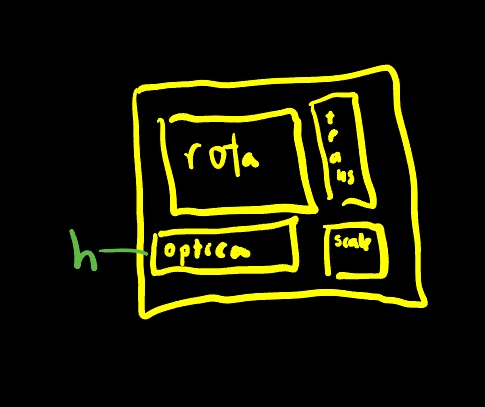 rota
trans
optica
scale
h